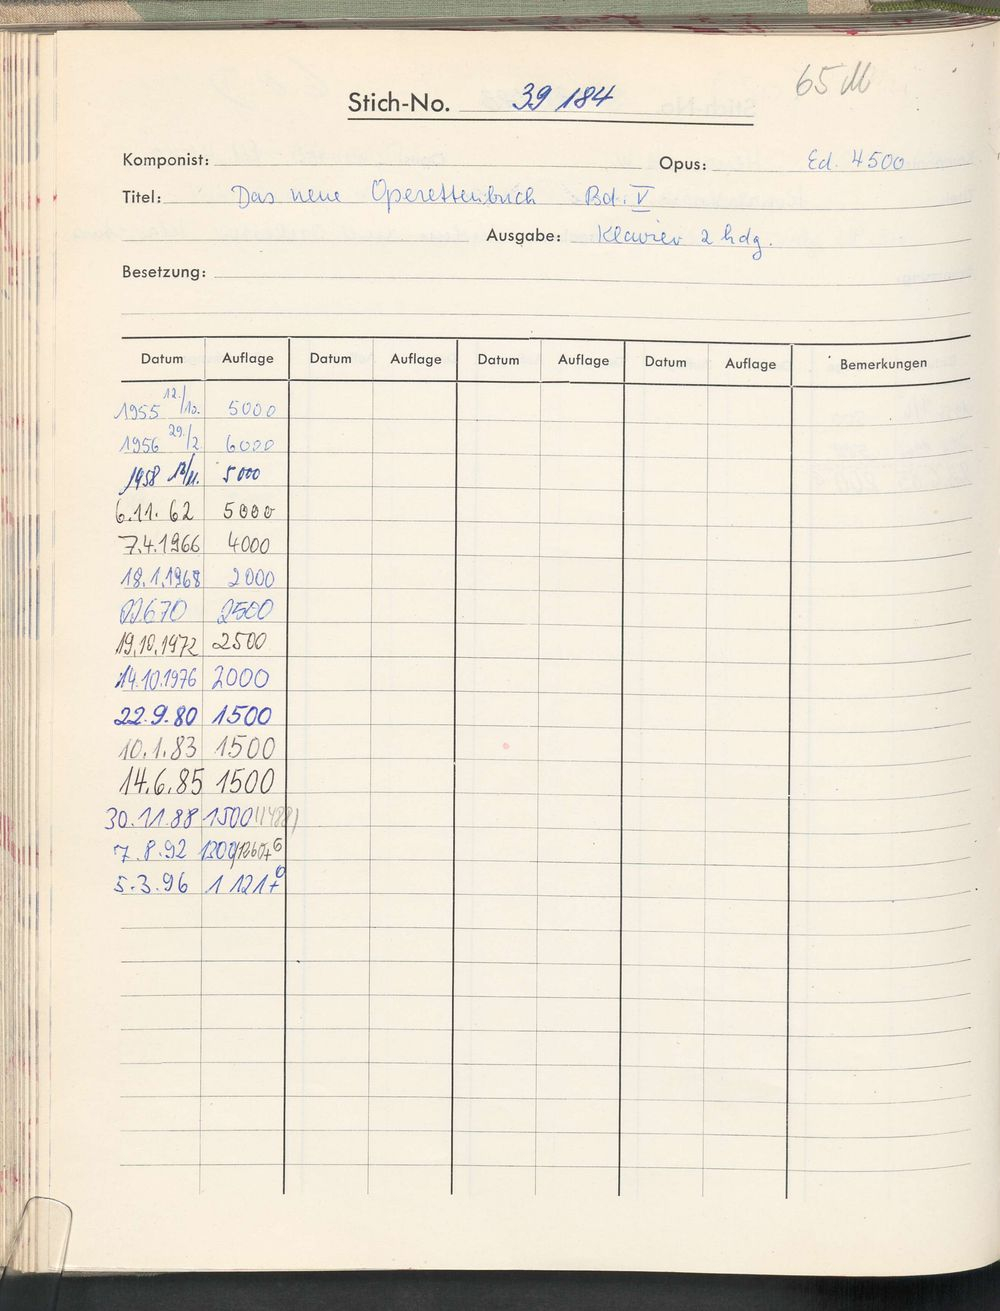 65 M
Stich-No. 39 184
Komponist: Opus: Ed. 4500
Titel: Das neue Operettenbuch Bd. V
Ausgabe: Klavier 2 hdg.
Besetzung:
Datum Auflage Datum Auflage Datum Auflage Datum Auflage Bemerkungen
1955 12./10. 5000
1956 29./2. 6000
1958 12/11. 5000
6.11. 62 5000
7.4.1966 4000
18.1.1968 2000
670 2500
19.10.1972 2500
14.10.1976 2000
22.9.80 1500
10.1.83 1500
14.6.85 1500
30.11.88 1500 (1488)
7.8.92 1300
5.3.96 1 121